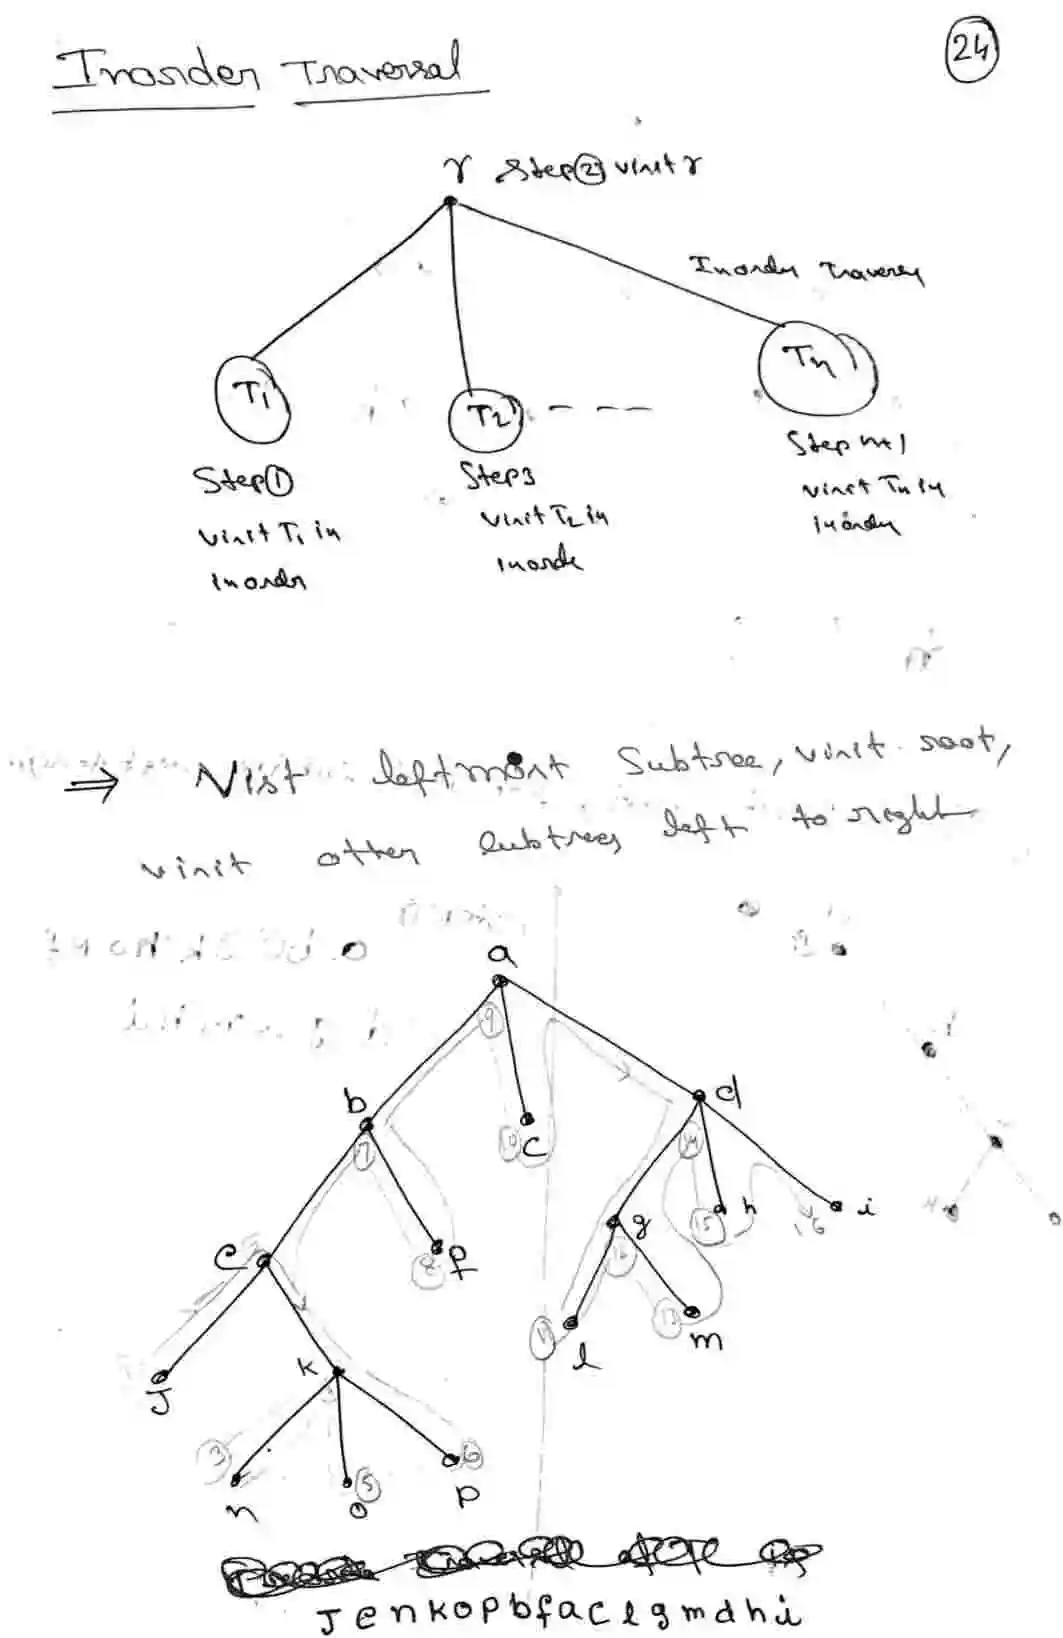 Inorder Traversal
24
r Step 2 visit r
Inorder Travers
T1
T2 - - - -
Tn
Step 1
visit T1 in
inordr
Step 3
visit T2 in
inorde
Step n+1
visit Tn in
inorder
⇒ Vist leftmost Subtree, visit root,
visit other subtrees left to right
a
9
b
7
c
10
d
14
e
f
8
g
12
h
15
i
16
J
k
l
11
m
13
n
3
o
5
p
6
J e n k o p b f a c l g m d h i